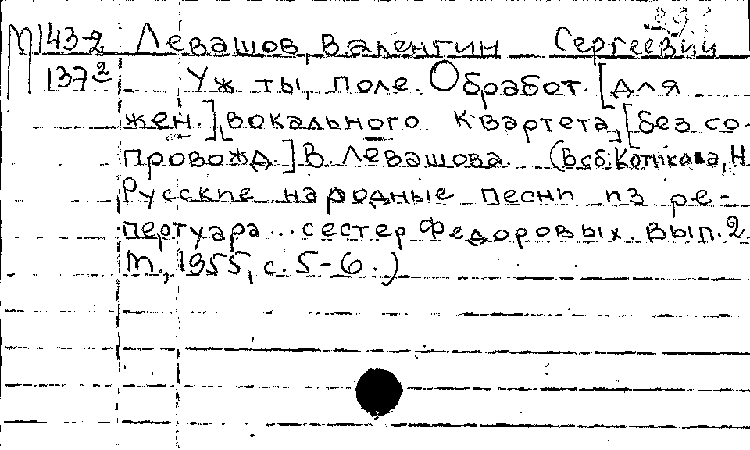 М143-2 Левашов, Валентин Сергеевич
137² Уж ты, поле. Обработ. [для
жен.] вокального квартета, [без со-
провожд.] В. Левашова. (В сб. Котикова, Н.
Русские народные песни из ре-
пертуара... сестер Федоровых. Вып. 2
М., 1955, с. 5-6.)